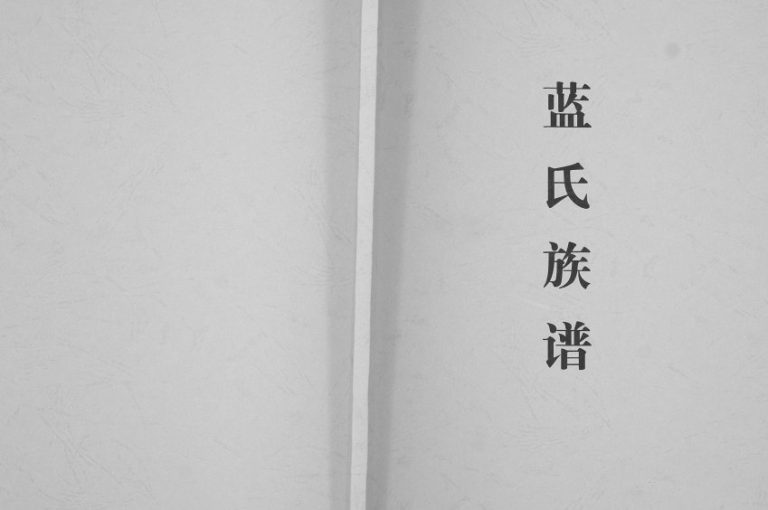 蓝氏族谱